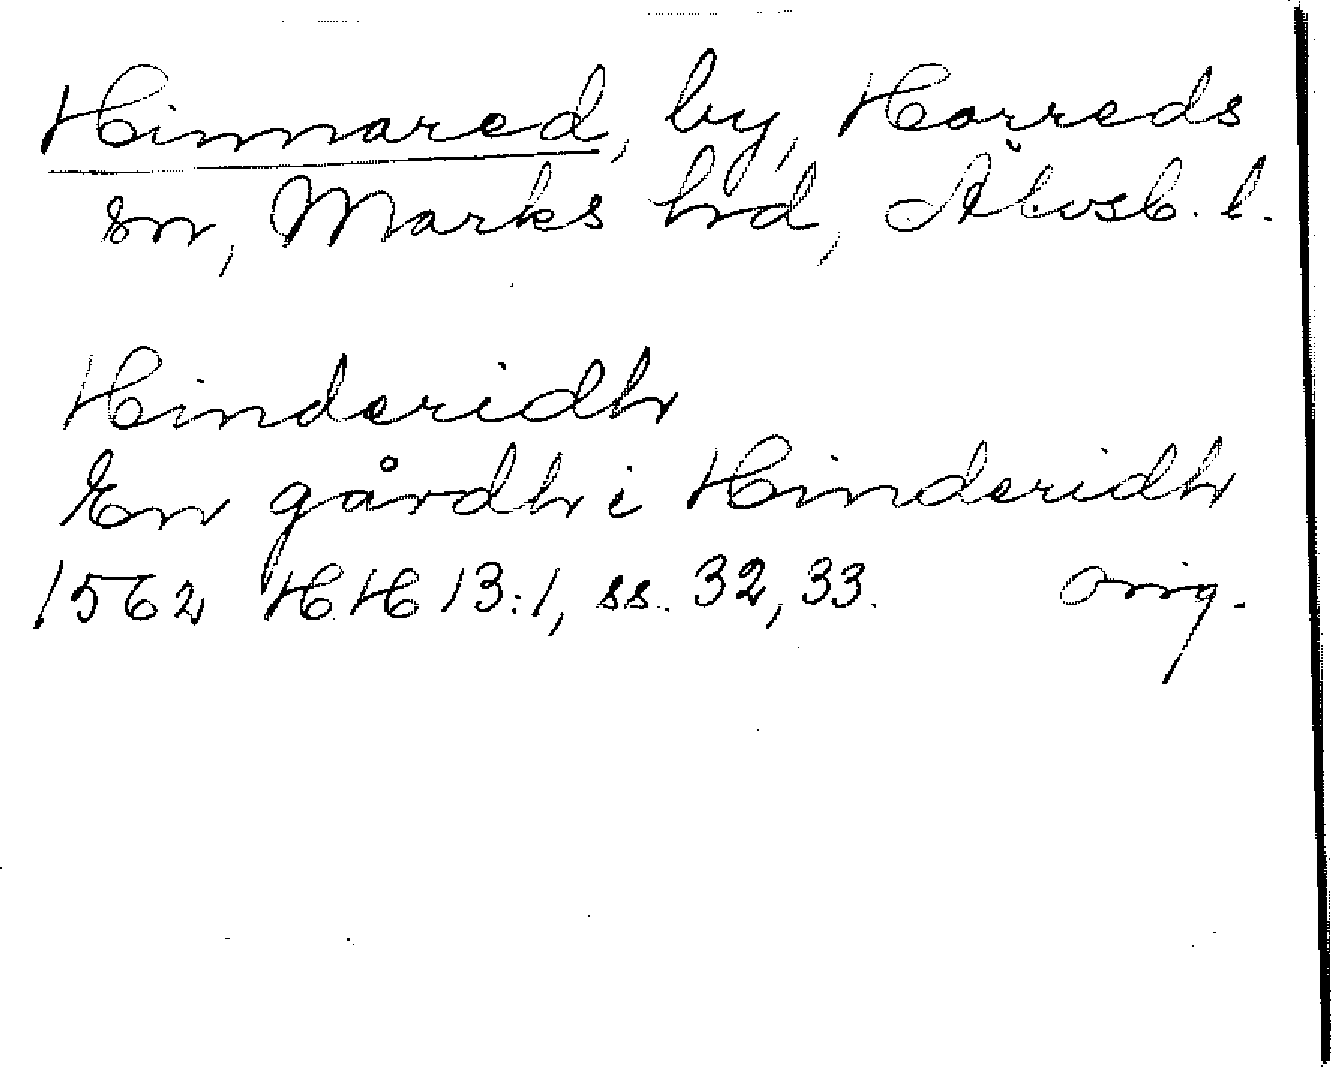 Hinnared, by, Horreds
sn, Marks hd, Älvsb. l.
Hinderidh
En gårdh i Hinderidh
1562 HH 13:1, ss. 32, 33. orig.